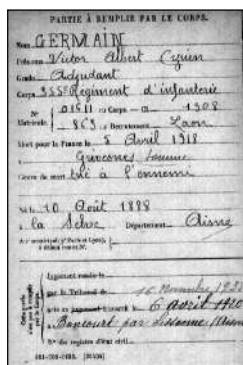 PARTIE À REMPLIR PAR LE CORPS.
Nom GERMAIN
Prénoms Victor Albert Cyrien
Grade Adjudant
Corps 355e Régiment d'infanterie
N° 01611 au Corps. — Cl. 1908
Matricule. 863 au Recrutement Laon
Mort pour la France le 5 Avril 1918
à Grivesnes Somme
Genre de mort tué à l'ennemi
Né le 10 Août 1888
à la Selve Département Aisne
Arr municipal (pr Paris et Lyon),
à défaut rue et N°.
Jugement rendu le
par le Tribunal de
acte ou jugement transcrit le 6 avril 1920
à Boncourt par Sissonne (Aisne
N° du registre d'état civil